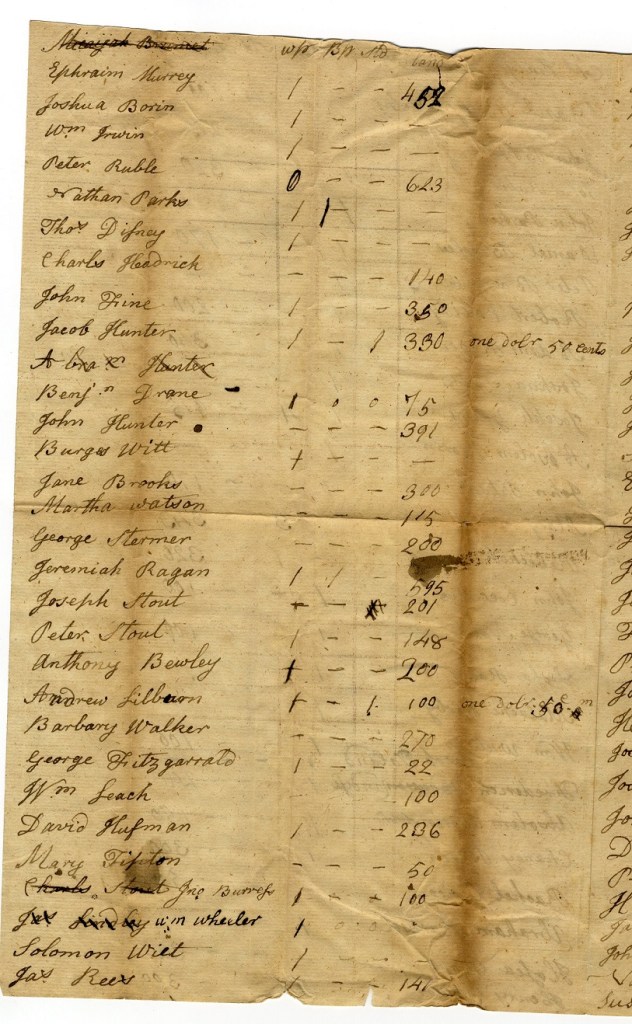 Micajah Bennet wp Bp Std land
Ephraim Murrey 1 - - 452
Joshua Borin 1 - - -
Wm Irwin 1 - - -
Peter Ruble 0 - - 623
Nathan Parks 1 1 - - -
Thos Disney 1 - - -
Charls Headrick - - - 140
John Fine 1 - - 350
Jacob Hunter 1 - 1 330 one dolr 50 cents
Abram Hunter
Benjn Drane 1 0 0 75
John Hunter - - - 391
Burges Witt + - - -
Jane Brooks - - - 300
Martha Watson - - - 115
George Stermer - - - 200
Jeremiah Ragan 1 1 - 595
Joseph Stout + - 201
Peter Stout 1 - - 148
Anthony Bewley + - - 200
Andrew Lilburn + - 1 100 one dolr 50
Barbary Walker - - - 270
George Fitzgarrald 1 - - 22
Wm Leach 100
David Hufman 1 - - 236
Mary Tipton - - - 50
Charls Stout Jno Burress 1 - - 100
Jas Lindley wm wheeler 1
Solomon Wilt 1 - - -
Jas Rees 1 - - 141